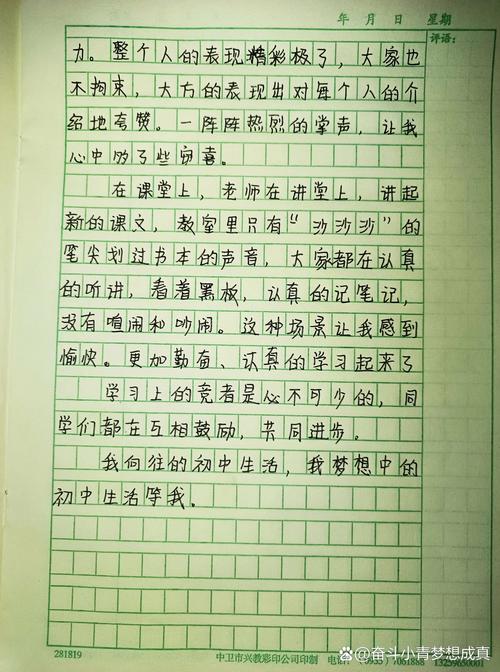 年 月 日 星期
评语:
力。整个人的表现精彩极了，大家也
不拘束，大方的表现出对每个人的介
绍地夸赞。一阵阵热烈的掌声，让我
心中多了些窃喜。
在课堂上，老师在讲堂上，讲起
新的课文，教室里只有“沙沙沙”的
笔尖划过书本的声音，大家都在认真
的听讲，看着黑板，认真的记笔记，
没有喧闹和吵闹。这种场景让我感到
愉快。更加勤奋、认真的学习起来了
学习上的竞者是必不可少的，同
学们都在互相鼓励，共同进步。
我向往的初中生活，我梦想中的
初中生活等我。
281819 中卫市兴教彩印公司印制 电话 7061888
@奋斗小青梦想成真